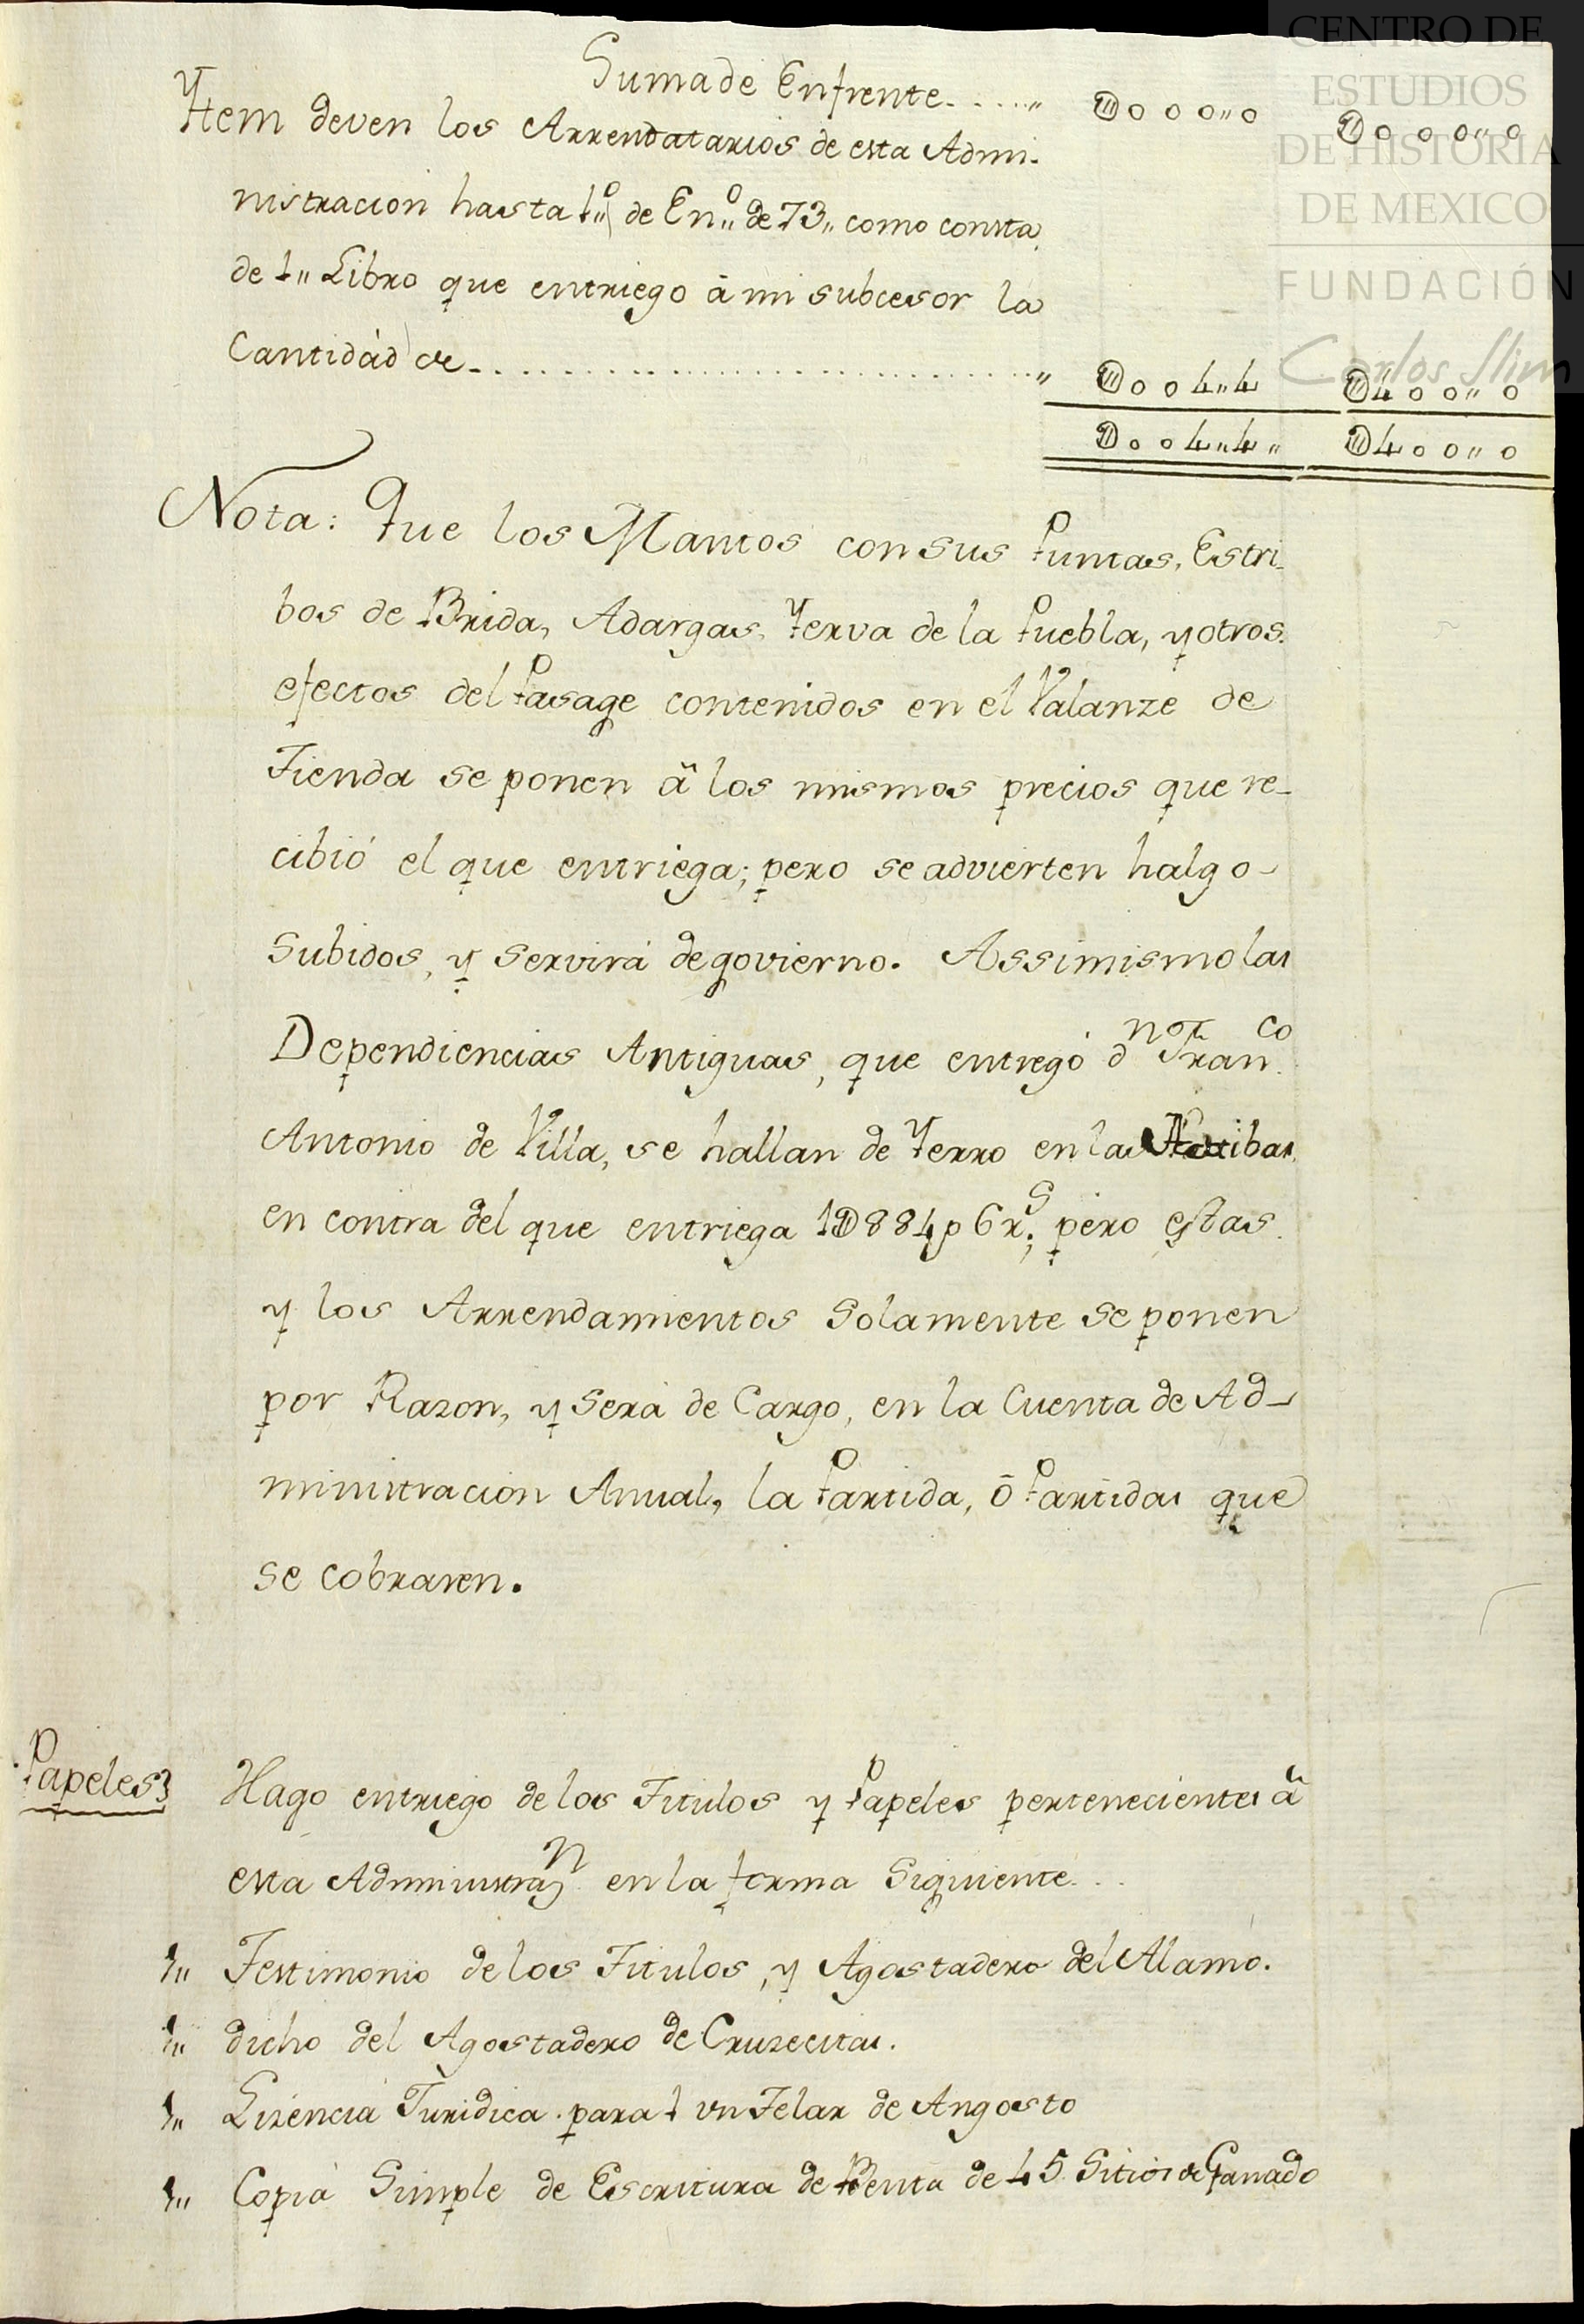 CENTRO DE
ESTUDIOS
DE HISTORIA
DE MEXICO
FUNDACIÓN
Carlos Slim
Suma de Enfrente..... U000"0 U000"0
Ytem deven los Arrendatarios de esta Admi-
nistracion hasta 1"º de En"º de 73" como consta
de 1" Libro que entriego â mi subcesor la
Cantidád de U004"4 U400"0
U004"4" U400"0
Nota: Que los Mantos con sus Puntas, Estri-
bos de Brida, Adargas, Yerva de la Puebla, y otros
efectos del Pasage contenidos en el Valanze de
Tienda se ponen â los mismos precios que re-
cibió el que entriega; pero se advierten halgo
Subidos, y Servirá de govierno. Assimismo las
Dependiencias Antiguas, que entregó dⁿ Franᶜᵒ
Antonio de Villa, se hallan de Yerro en las
en contra del que entriega 1U884p 6rˢ; pero estas
y los Arrendamientos Solamente se ponen
por Razon, y Será de Cargo, en la Cuenta de Ad-
ministracion Anual, la Partida, ô Partidas que
se cobraren.
Papeles} Hago entriego de los Titulos y Papeles pertenecientes â
esta Administraⁿ en la forma Siguiente...
1" Testimonio de los Titulos, y Agostadero del Alamo.
1" dicho del Agostadero de Cruzecitas.
1" Lizencia Juridica para 1 un Telar de Angosto
1" Copia Simple de Escritura de Venta de 45 Sitios de Ganado